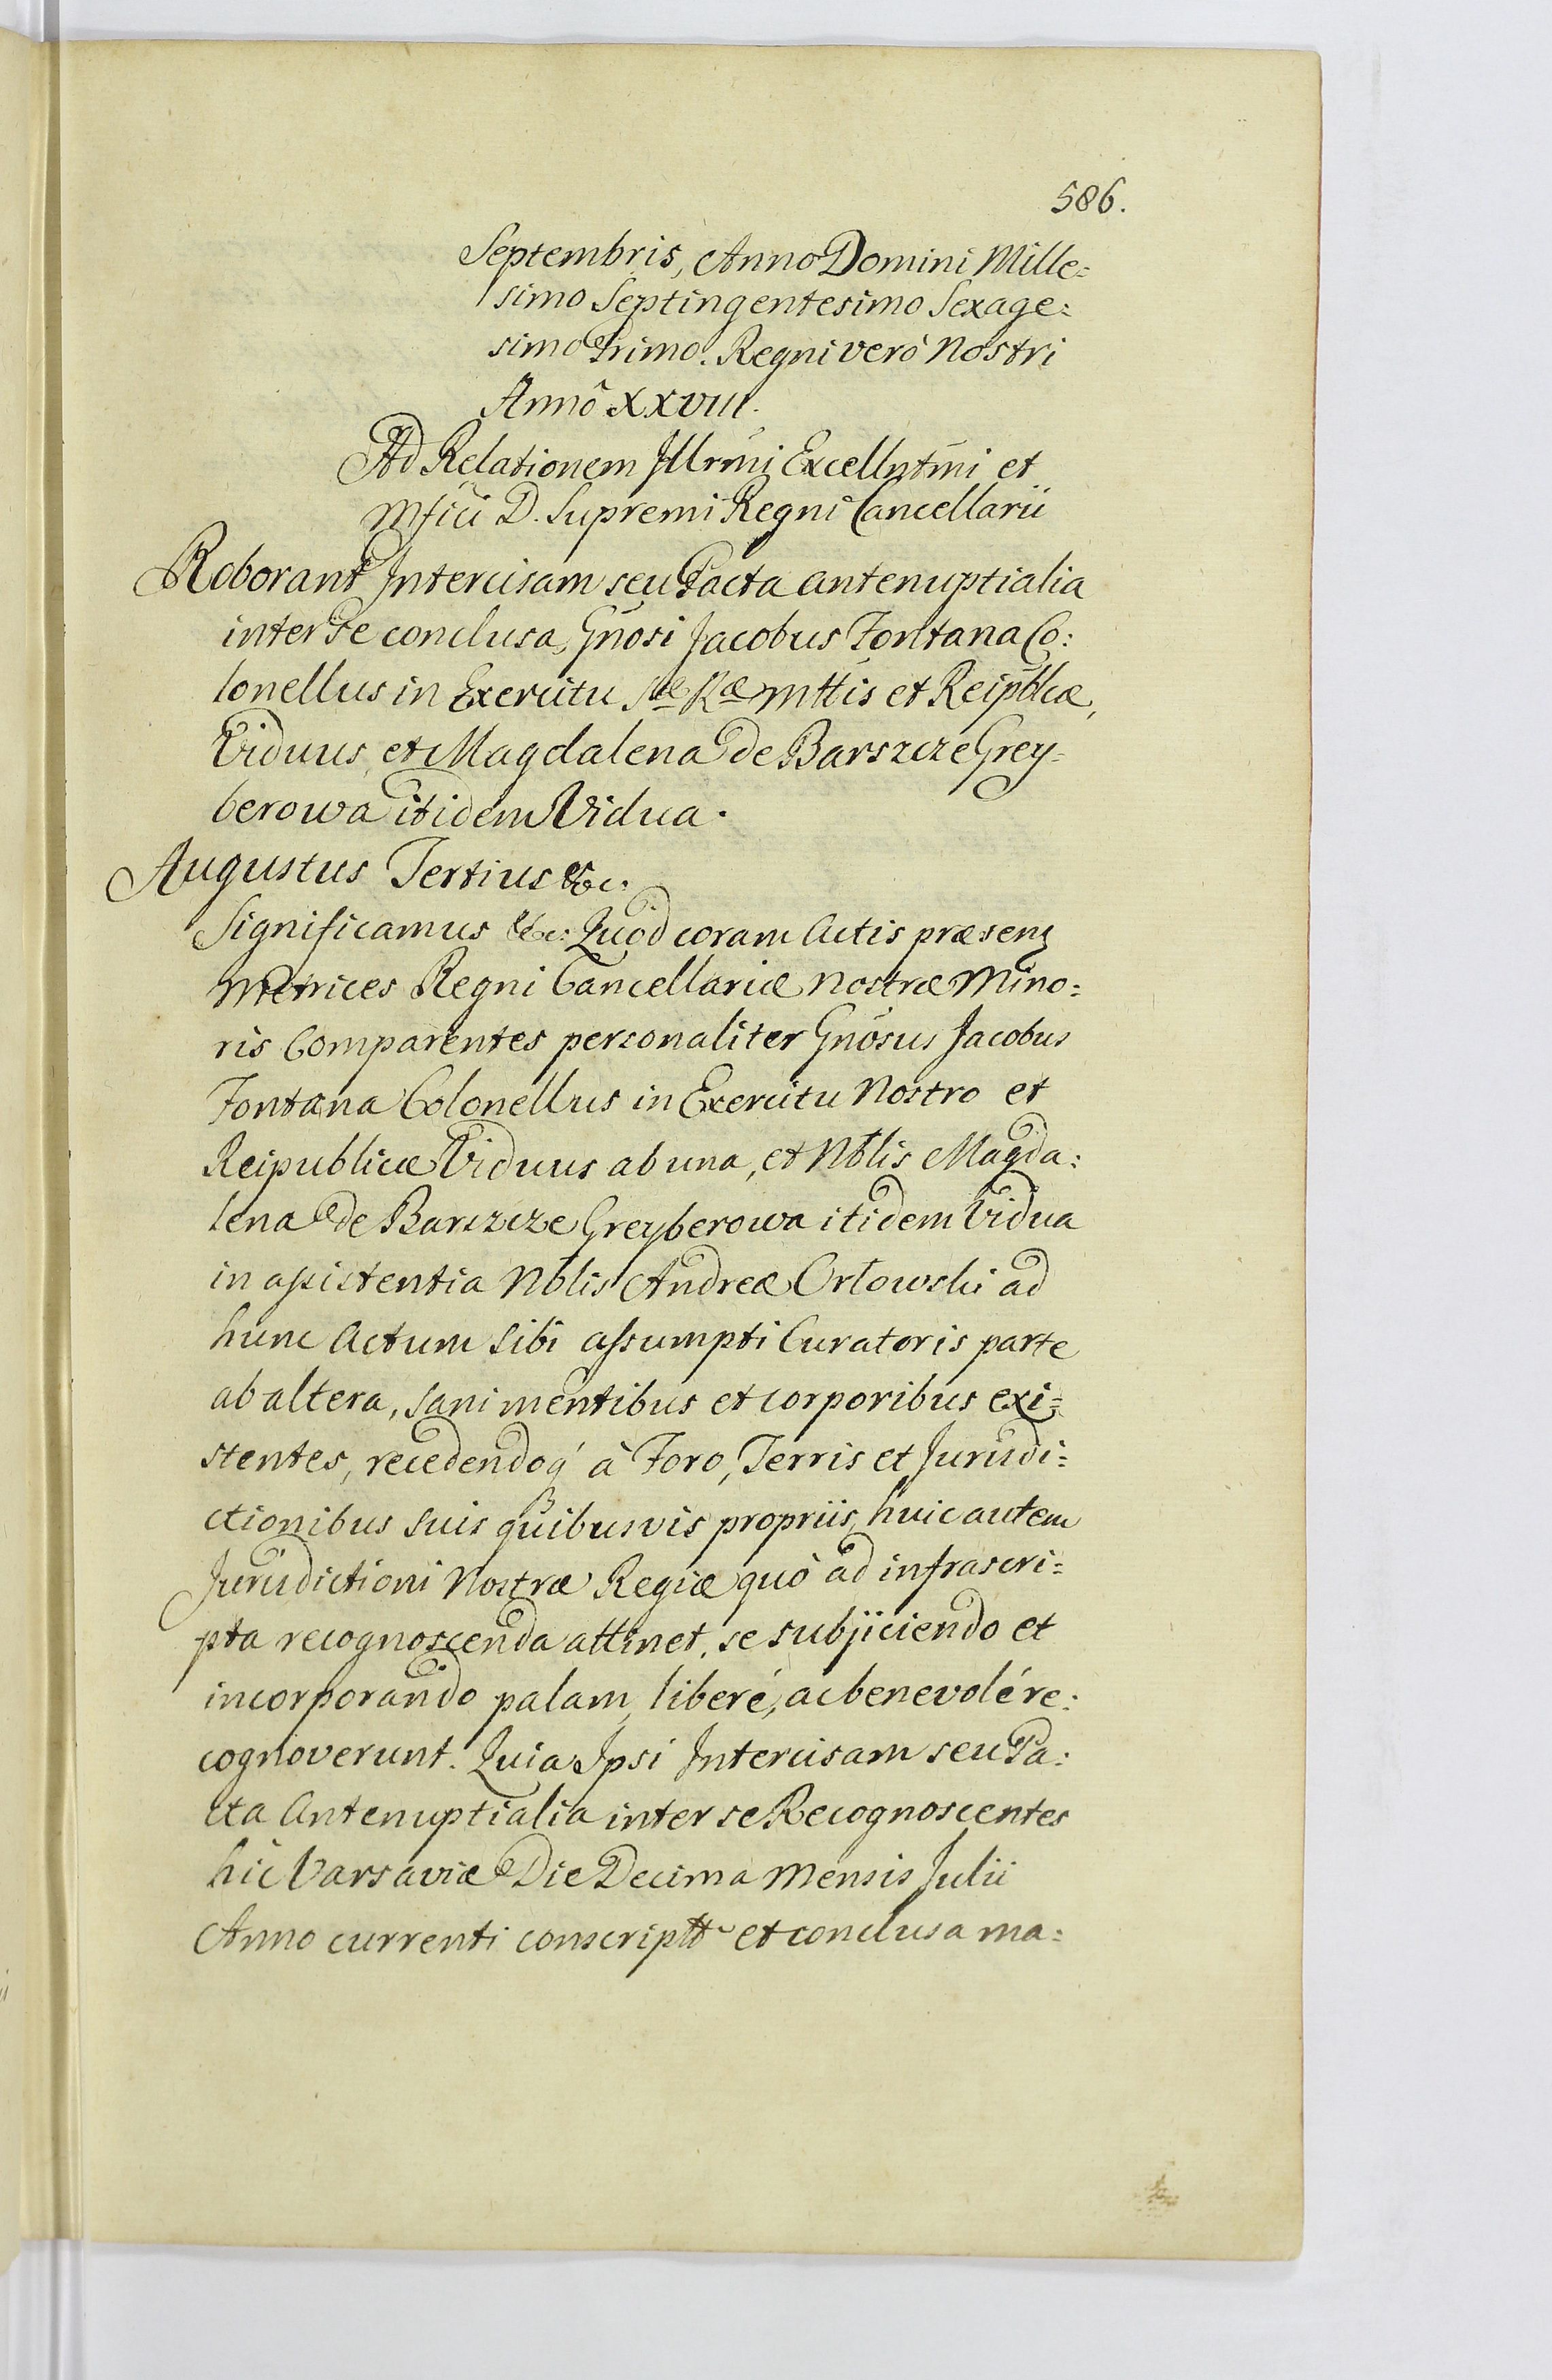 586.
Septembris, Anno Domini Mille=
simo Septingentesimo Sexage=
simo Primo. Regni verò Nostri
Annô XXVIII.
Ad Relationem Jllrmi Excellntmi et
Mfici D. Supremi Regni Cancellarii
Roborant Intercisam seu Pacta antenuptialia
inter se conclusa, Gnosi Jacobus Fontana Co:
lonellus in Exercitu Sæ Ræ Mttis et Reipblicæ,
Viduus, et Magdalena de Barszcze Grey=
berowa itidem Vidua.
Augustus Tertius &c.
Significamus &c: Quod coram Actis præsenz
Metrices Regni Cancellariæ Nostræ Mino=
ris Comparentes personaliter Gnosus Jacobus
Fontana Colonellus in Exercitu Nostro et
Reipublicæ Viduus ab una, et Nblis Magda:
lena de Barszcze Greyberowa itidem Vidua
in assistentia Nblis Andreæ Orłowski ad
hunc Actum sibi assumpti Curatoris parte
ab altera, sani mentibus et corporibus exi=
stentes, recedendoq́ à Foro, Terris et Jurisdi=
ctionibus suis quibusvis propriis, huic autem
Jurisdictioni Nostræ Regiæ quò ad infrascri=
pta recognoscenda attinet, se subjiciendo et
incorporando palam, liberé, ac benevolé re:
cognoverunt. Quia Ipsi Intercisam seu Pa:
cta Antenuptialia inter se Recognoscentes
hic Varsaviæ Die Decima Mensis Julii
Anno currenti conscriptt et conclusa ma: